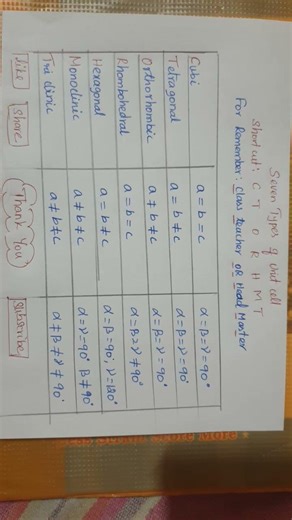 Seven Types of Unit cell
Short cut: C T O R H M T
For Remember: Class teacher OR Head Master
Cubi a = b = c α = β = γ = 90°
Tetragonal a = b ≠ c α = β = γ = 90°
Orthorhombic a ≠ b ≠ c α = β = γ = 90°
Rhombohedral a = b = c α = β = γ ≠ 90°
Hexogonal a = b ≠ c α = β = 90; γ = 120°
Monoclinic a ≠ b ≠ c α = γ = 90° β ≠ 90°
Tri clinic a ≠ b ≠ c α ≠ β ≠ γ ≠ 90°
like share Thank You Subscribe